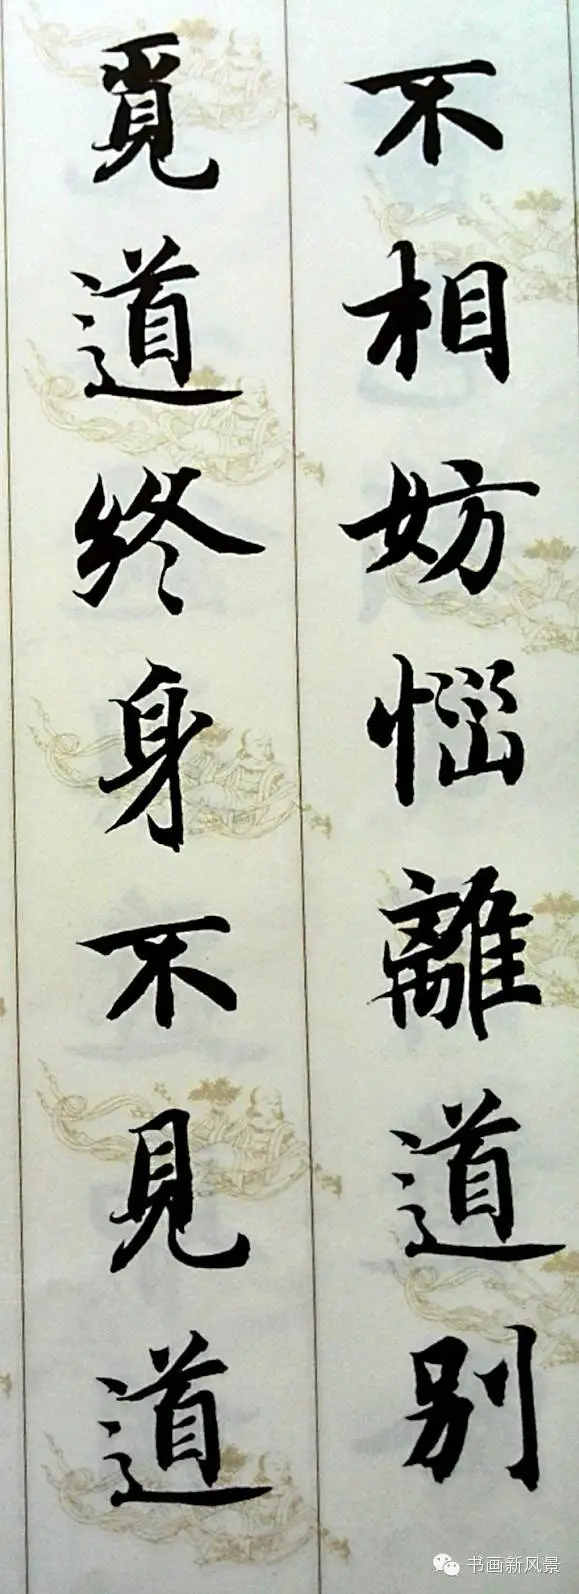 不相妨惱離道别
覓道終身不見道
书画新风景